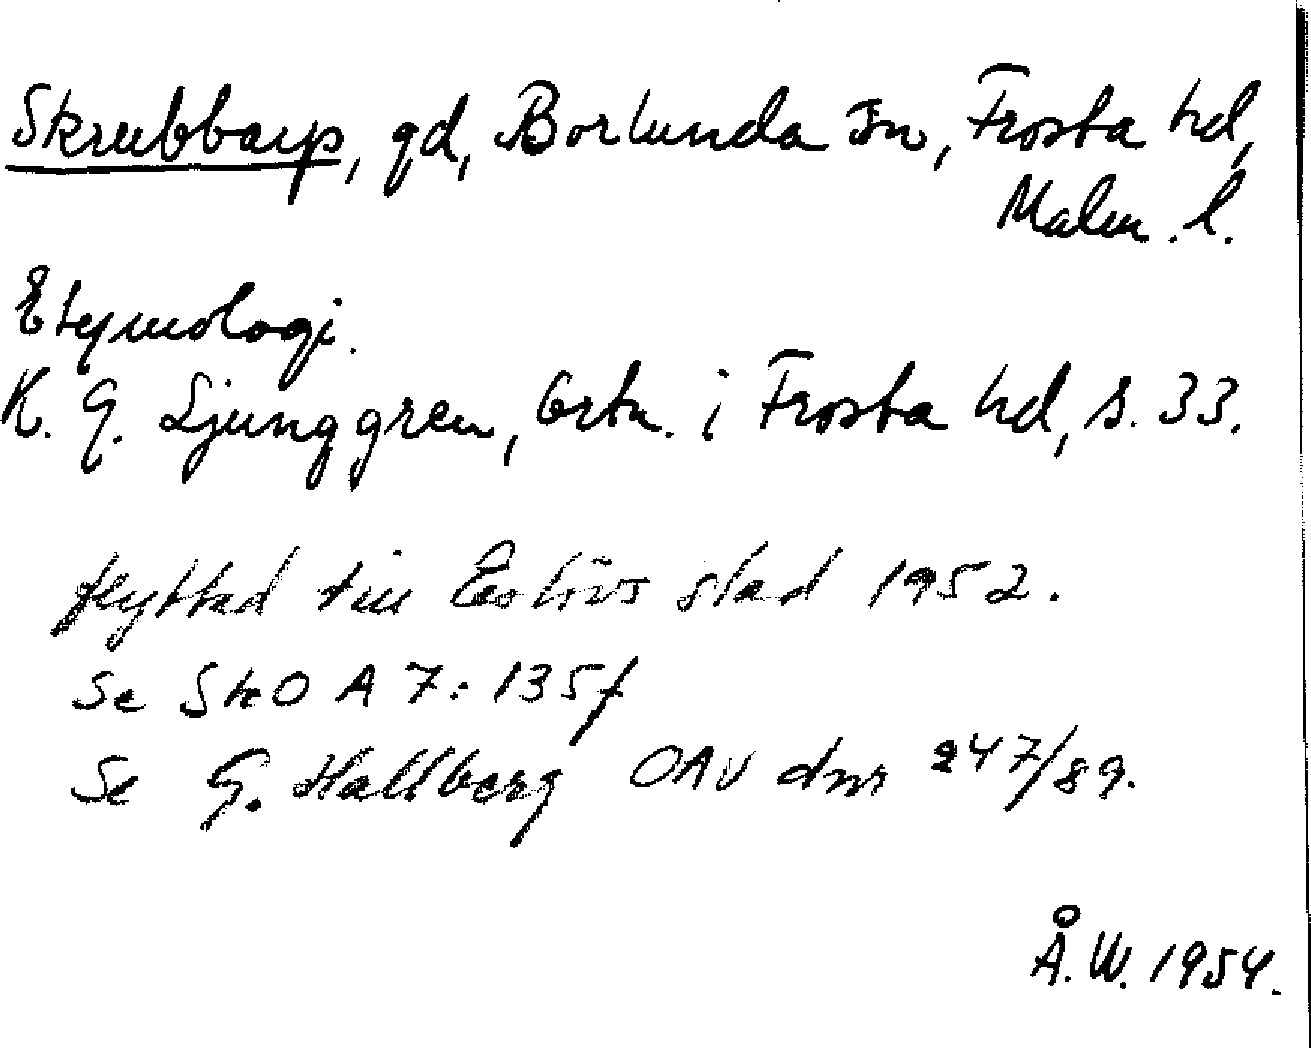 Skrubbarp, gd, Borlunda sn, Frosta hd,
Malm. l.
Etymologi.
K. G. Ljunggren, Ortn. i Frosta hd, s. 33.
flyttad till Eslövs stad 1952.
Se SkO A 7: 135f
Se G. Hallberg OAU dnr 247/89.
Å. W. 1954.